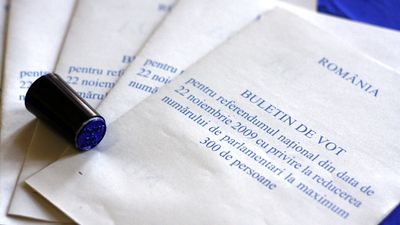 ROMÂNIA
BULETIN DE VOT
pentru referendumul naţional din data de
22 noiembrie 2009 cu privire la reducerea
numărului de parlamentari la maximum
300 de persoane
BULETIN
pentru referendum
22 noiembrie
BULE
pentru re
22 noie
numă